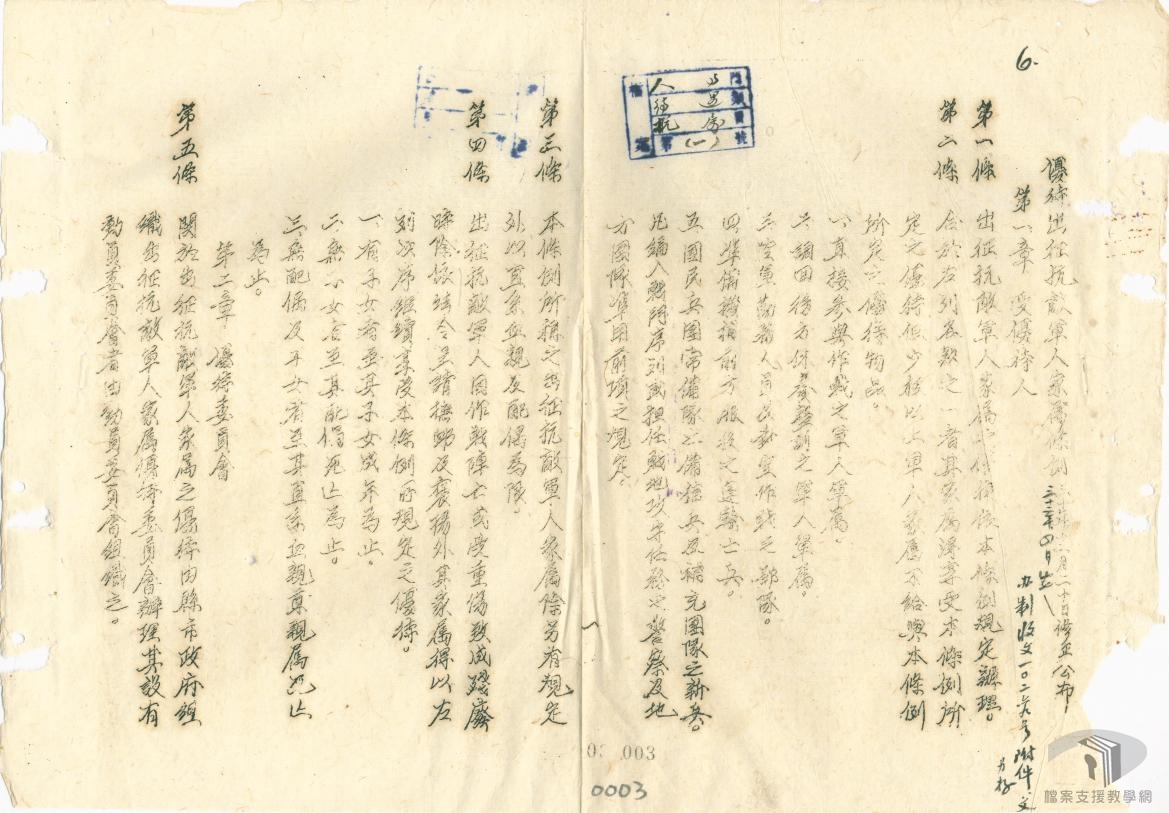 6.
優待出征抗敵軍人家屬條例
月二十日修正公布
办制收文一〇二六号附件
第一章 受優待人
第一條 出征抗敵軍人家屬之優待依本條例規定辦理。
第二條 合於左列各款之一者其家屬得享受本條例所
定之優待但少校以上軍人家屬不給與本條例
所定之優待物品。
一、直接參與作戰之軍人軍屬。
二、調回後方休養整訓之軍人軍屬。
三、空軍勤務人員及參空作戰之部隊。
四、準備撥補前方服役之運輸士兵。
五、國民兵團常備隊之備補兵及補充團隊之新兵。
凡編入戰鬥序列或担任戰地攻守任務之警察及地
方團隊準用前項之規定。
第三條 本條例所稱之出征抗敵軍人家屬除另有規定
外以直系血親及配偶為限
第四條 出征抗敵軍人因作戰陣亡或受重傷致成殘廢
除依法令呈請撫卹及褒揚外其家屬得以左
列次序繼續享受本條例所規定之優待。
一、有子女者至其子女成年為止。
二、無子女者至其配偶死亡為止。
三、無配偶及子女者至其直系血親尊親屬死亡
為止。
第二章 優待委員會
第五條 關於出征抗敵軍人家屬之優待由縣市政府組
織出征抗敵軍人家屬優待委員會辦理其設有
動員委員會者由動員委員會組織之。
003
0003
檔案支援教學網